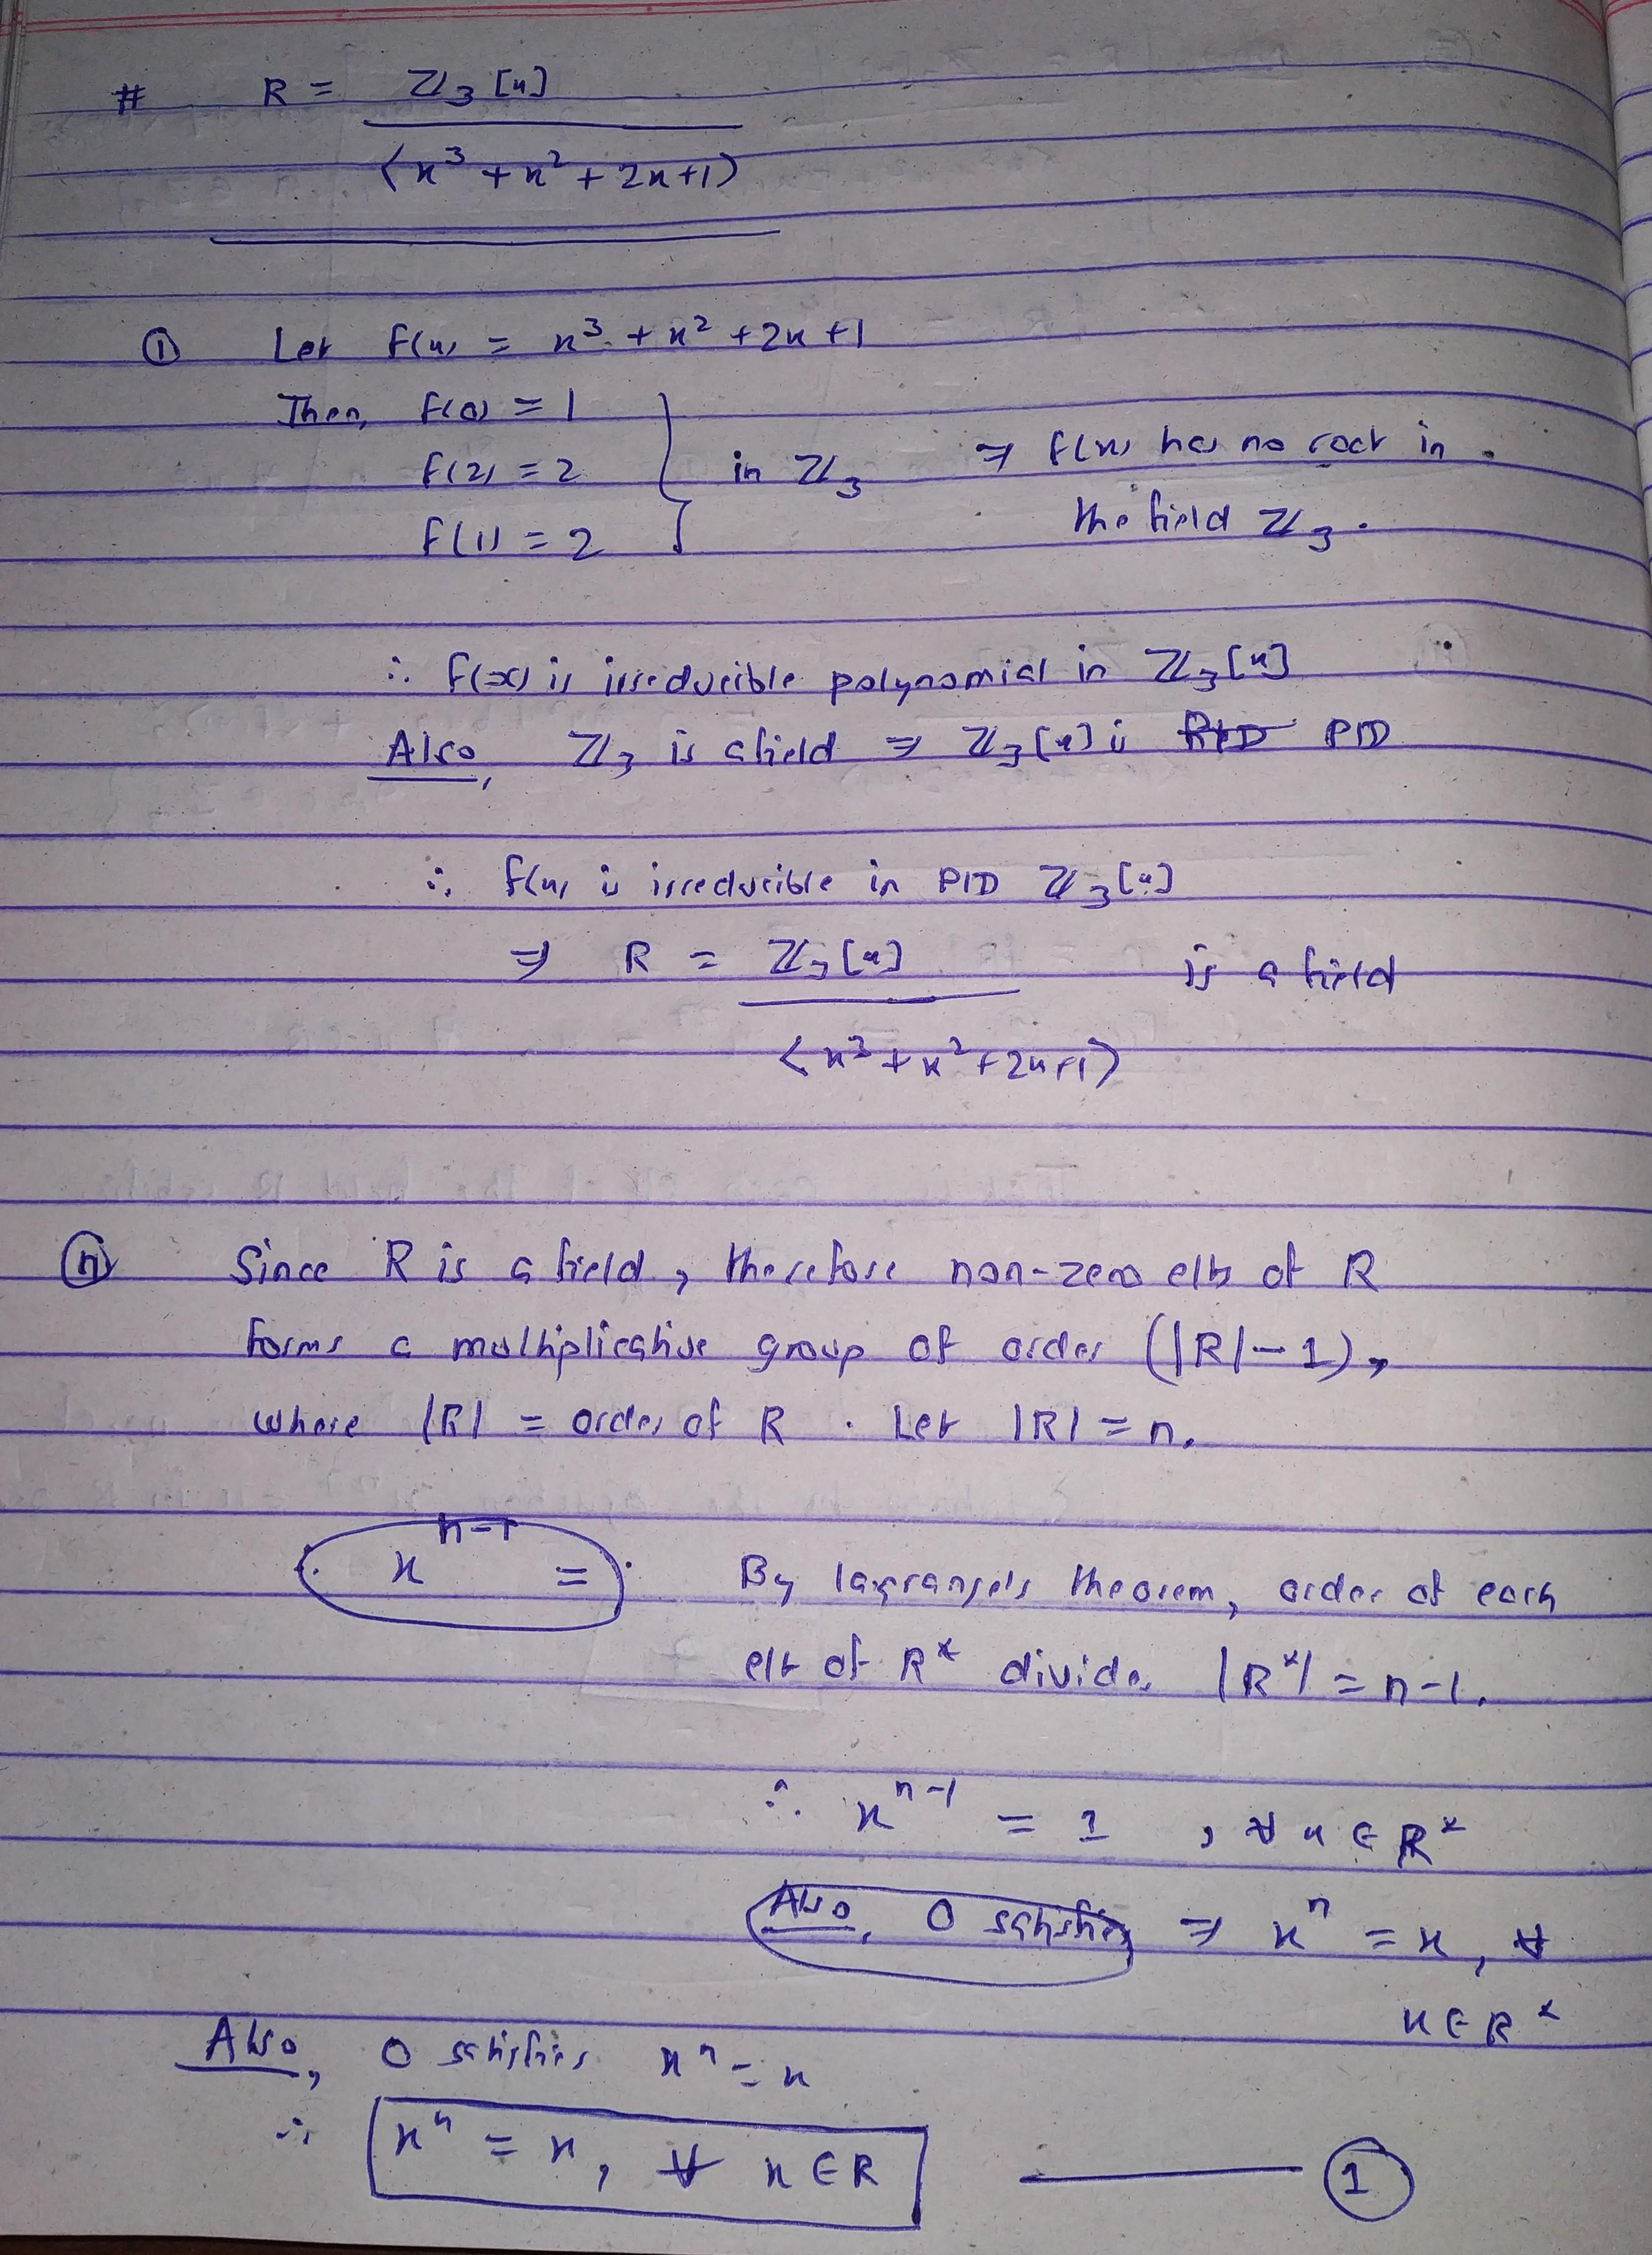 # R = ℤ₃[x]
⟨x³ + x² + 2x + 1⟩
① Let f(x) = x³ + x² + 2x + 1
Then, f(0) = 1
f(2) = 2 in ℤ₃ ⇒ f(x) has no root in
f(1) = 2 the field ℤ₃.
∴ f(x) is irreducible polynomial in ℤ₃[x]
Also, ℤ₃ is a field ⇒ ℤ₃[x] is PID
∴ f(x) is irreducible in PID ℤ₃[x]
⇒ R = ℤ₃[x] is a field
⟨x³ + x² + 2x + 1⟩
ⓘⓘ Since R is a field, therefore non-zero elts of R
forms a multiplicative group of order (|R| - 1),
where |R| = order of R. Let |R| = n.
xⁿ⁻¹ = By lagrange's theorem, order of each
elt of R* divides |R*| = n-1.
∴ xⁿ⁻¹ = 1, ∀ x ∈ R*
Also, 0 satisfies ⇒ xⁿ = x, ∀
x ∈ R*
Also, 0 satisfies xⁿ = x
∴ xⁿ = x, ∀ x ∈ R ——— ①